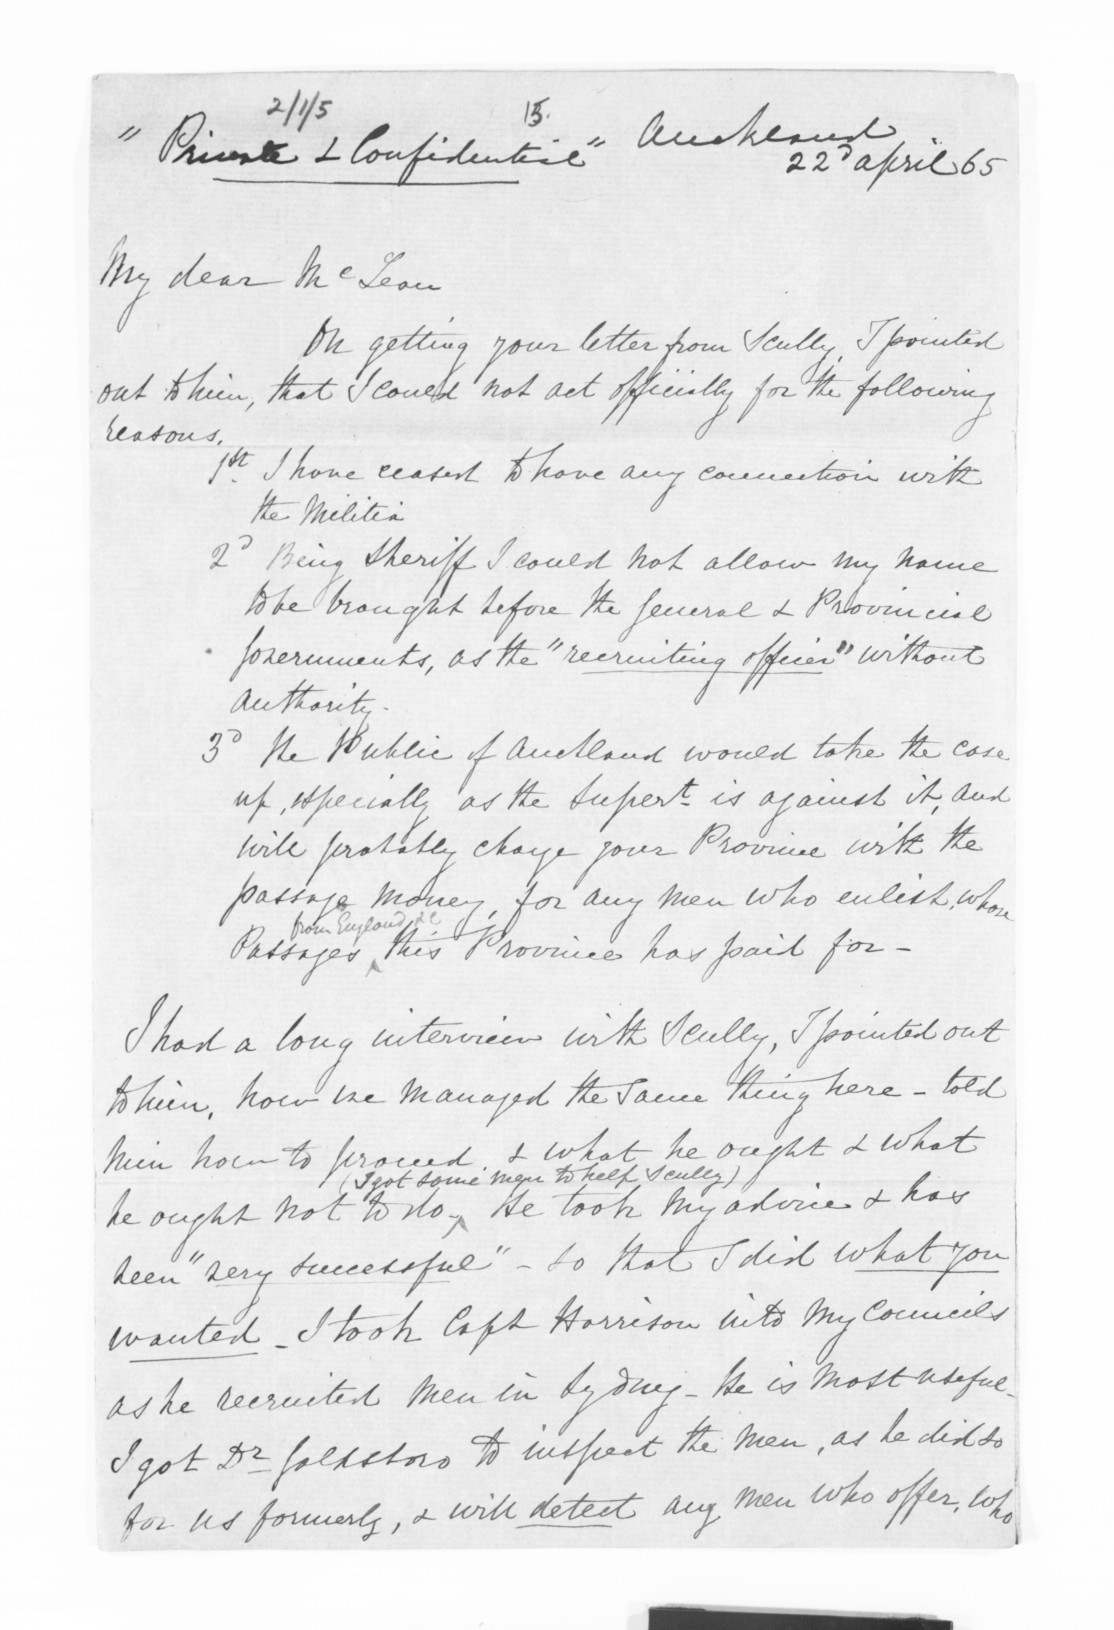 2/1/5
15.
"Private & Confidential" Auckland
22d April 65
My dear McLean
On getting your letter from Scully, I pointed
out to him, that I could not act officially for the following
reasons.
1st I have ceased to have any connection with
the Militia
2d Being Sheriff I could not allow my name
to be brought before the General & Provincial
Governments, as the "recruiting officer" without
authority.
3d The Public of Auckland would take the case
up, especially as the Supert. is against it, and
will probably charge your Province with the
passage money, for any men who enlist, whose
from England &c
Passages ^ this Province has paid for -
I had a long interview with Scully, I pointed out
to him, how we managed the same thing here - told
him how to proceed & what he ought & what
(I got some men to help Scully)
he ought not to do, ^ He took my advice & has
been "very successful" - so that I did what you
wanted - I took Capt Harrison into my Councils
as he recruited men in Sydney - He is most useful -
I got Dr Goldsboro to inspect the men, as he did so
for us formerly, & will detect any men who offer, who